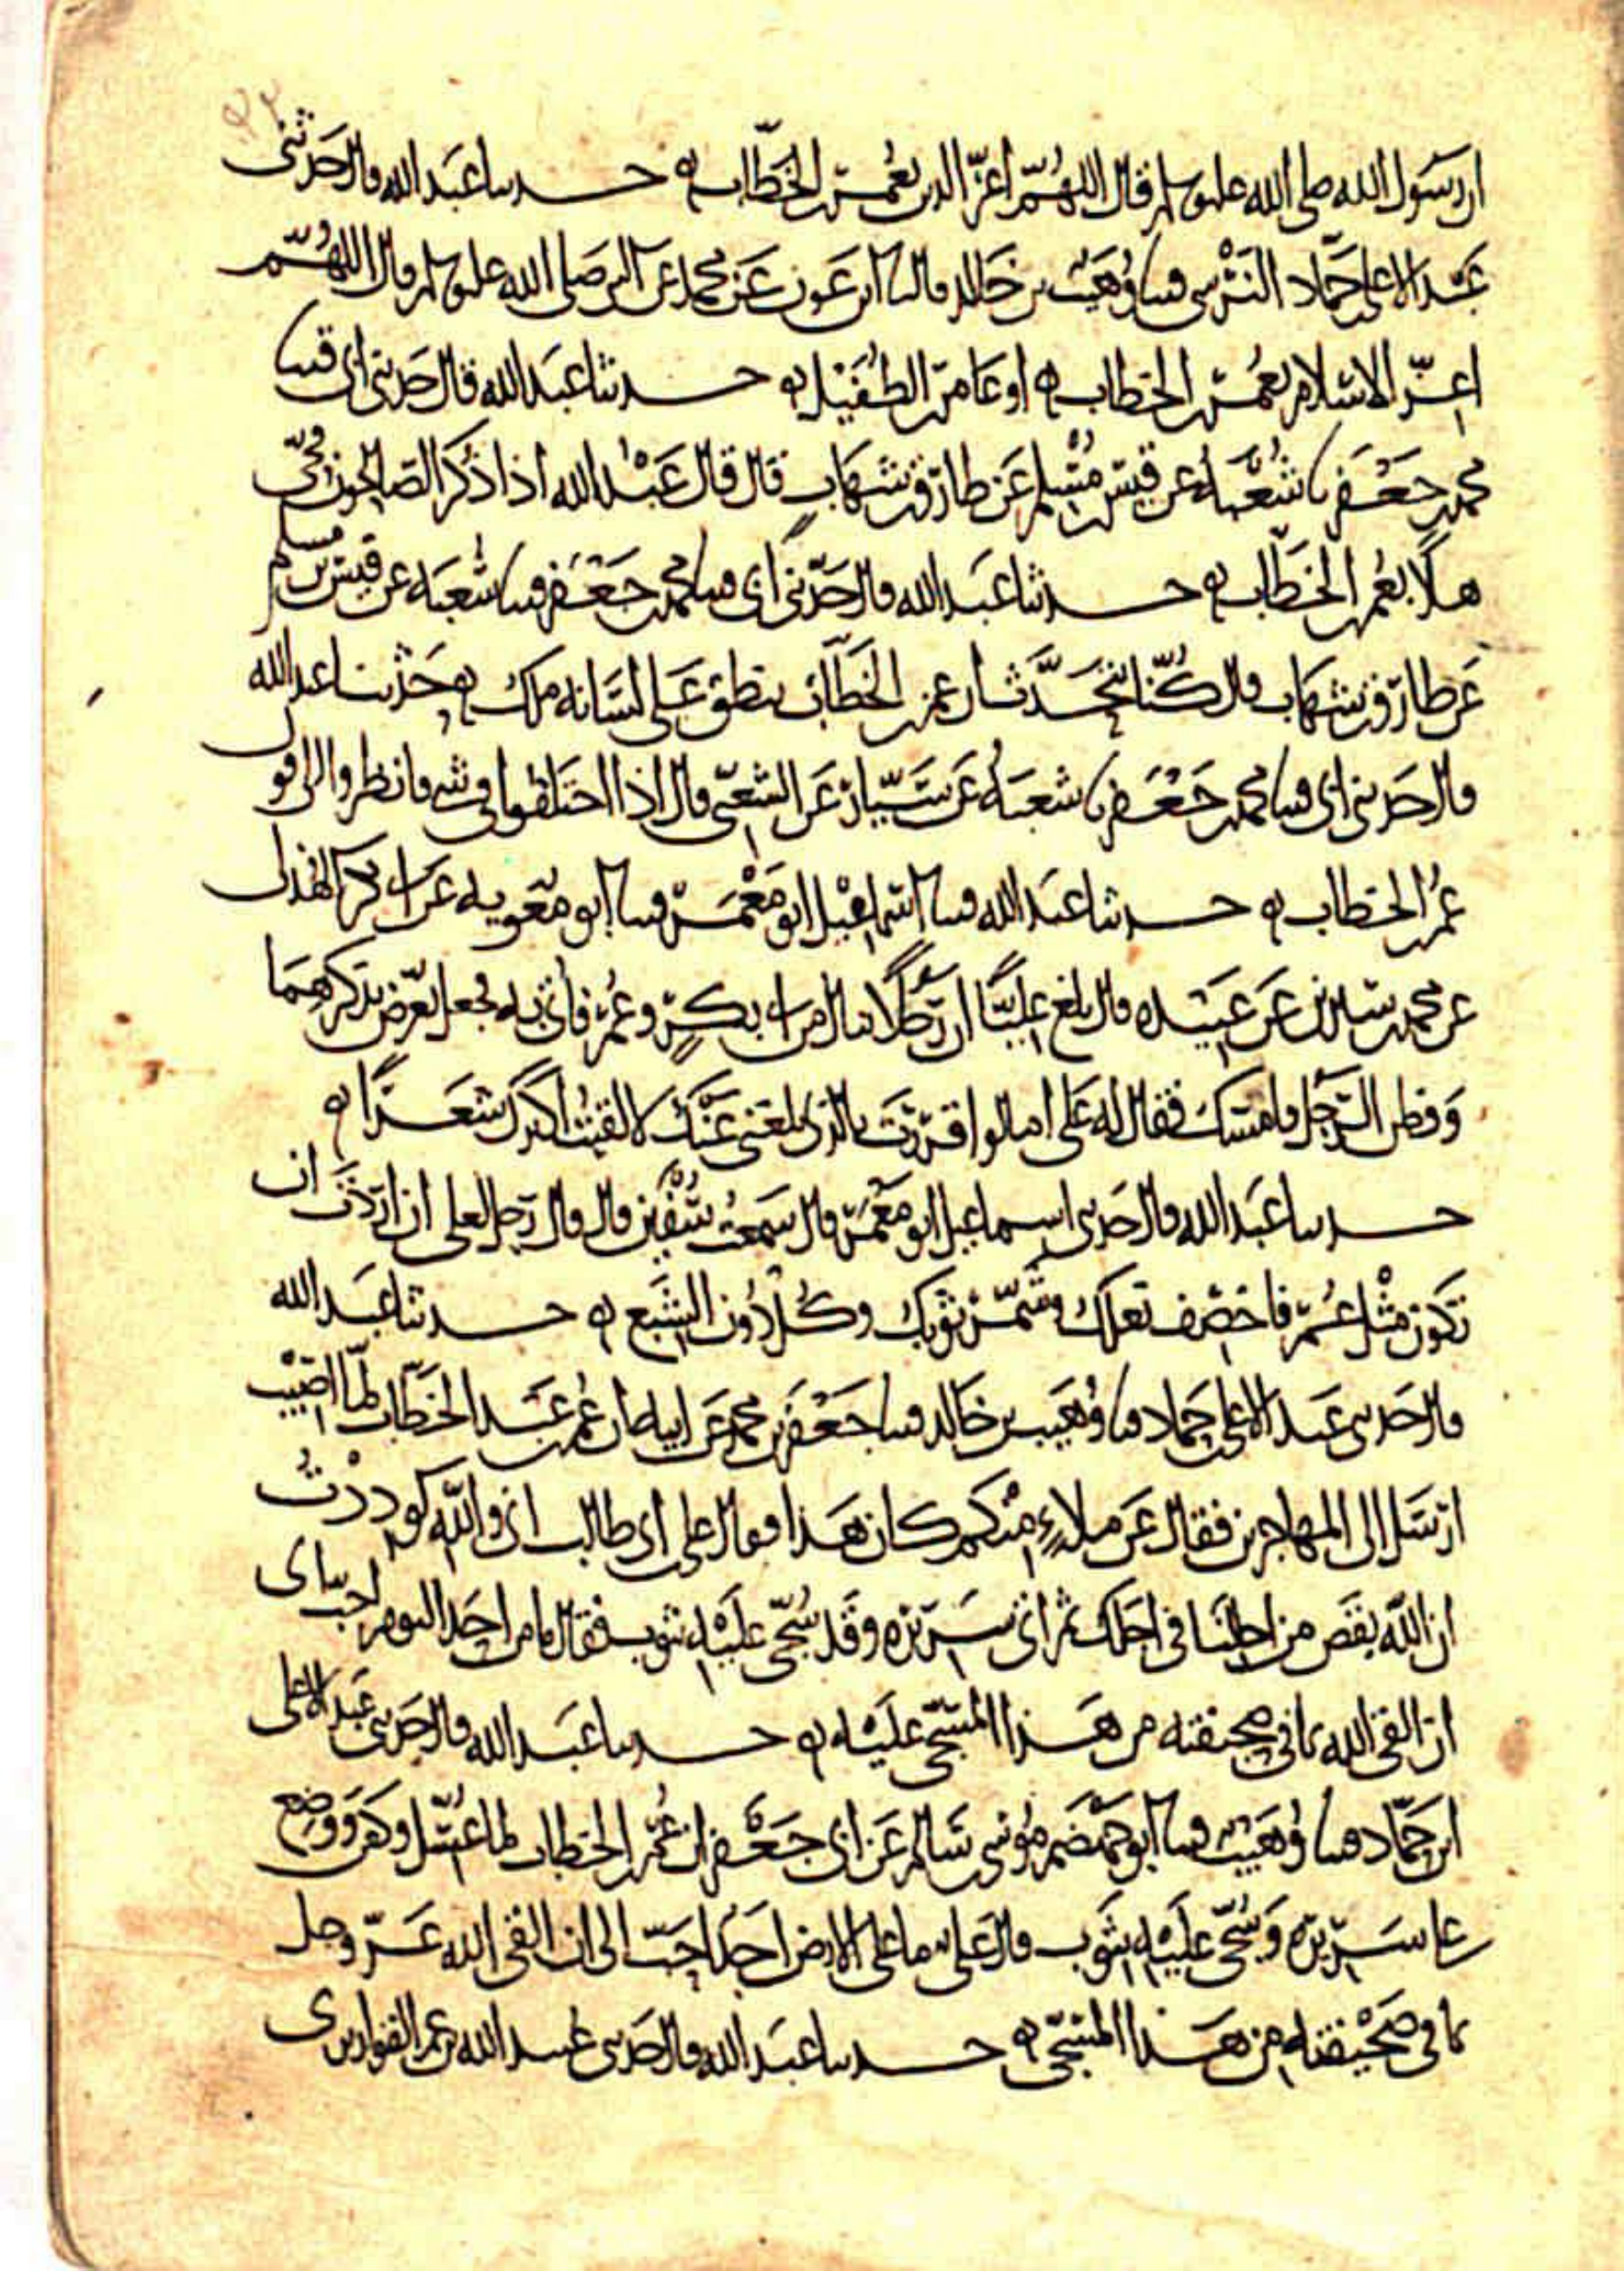 ان رسول الله صلى الله عليه وسلم قال اللهم اعز الدين بعمر بن الخطاب حدثنا عبد الله قال حدثني
عبد الاعلى بن حماد النرسي قثنا وهيب بن خالد قال ثنا ابن عون عن محمد عن النبي صلى الله عليه وسلم قال اللهم
اعز الاسلام بعمر بن الخطاب او عامر بن الطفيل حدثنا عبد الله قال حدثني ابي قثنا
محمد بن جعفر نا شعبة عن قيس بن مسلم عن طارق بن شهاب قال قال عبد الله اذا ذكر الصالحون فحي
هلا بعمر بن الخطاب حدثنا عبد الله قال حدثني ابي قثنا محمد بن جعفر قثنا شعبة عن قيس بن مسلم
عن طارق بن شهاب قال كنا نتحدث ان عمر بن الخطاب ينطق على لسانه ملك حدثنا عبد الله
قال حدثني ابي قثنا محمد بن جعفر نا شعبة عن سيار عن الشعبي قال اذا اختلفوا في شيء فانظروا الى قول
عمر بن الخطاب حدثنا عبد الله قثنا اسماعيل ابو معمر قثنا ابو معوية عن ابي بكر الهذلي
عن محمد بن سيرين عن عبيدة قال بلغ عليا ان رجلا نال من ابي بكر وعمر فاتي به فجعل يعرض بذكرهما
وفطن الرجل فامسك فقال له علي اما لو اقررت بالذي بلغني عنك لالقيت اكثرك شعرا
حدثنا عبد الله قال حدثني اسماعيل ابو معمر قال سمعت سفين قال قال رجل لعلي ان اردت ان
تكون مثل عمر فاخصف نعلك وشمر ثوبك وكل دون الشبع حدثنا عبد الله
قال حدثني عبد الاعلى بن حماد قثنا وهيب بن خالد قثنا جعفر بن محمد عن ابيه ان عمر بن الخطاب لما اصيب
ارسل الى المهاجرين فقال عن ملاء منكم كان هذا فقال علي بن ابي طالب اني والله لوددت
ان الله نقص من اجلنا في اجلك ثم اتى سريره وقد سجي عليه بثوب فقال ما من احد اليوم احب الي
ان القى الله بما في صحيفته من هذا المسجى عليه حدثنا عبد الله قال حدثني عبد الاعلى
ابن حماد قثنا وهيب قثنا ابو جهضم موسى بن سالم عن ابي جعفر ان عمر بن الخطاب لما غسل وكفن ووضع
على سريره وسجي عليه بثوب قال علي ما على الارض احد احب الي ان القى الله عز وجل
بما في صحيفته من هذا المسجى حدثنا عبد الله قال حدثني عبيد الله بن عمر القواريري